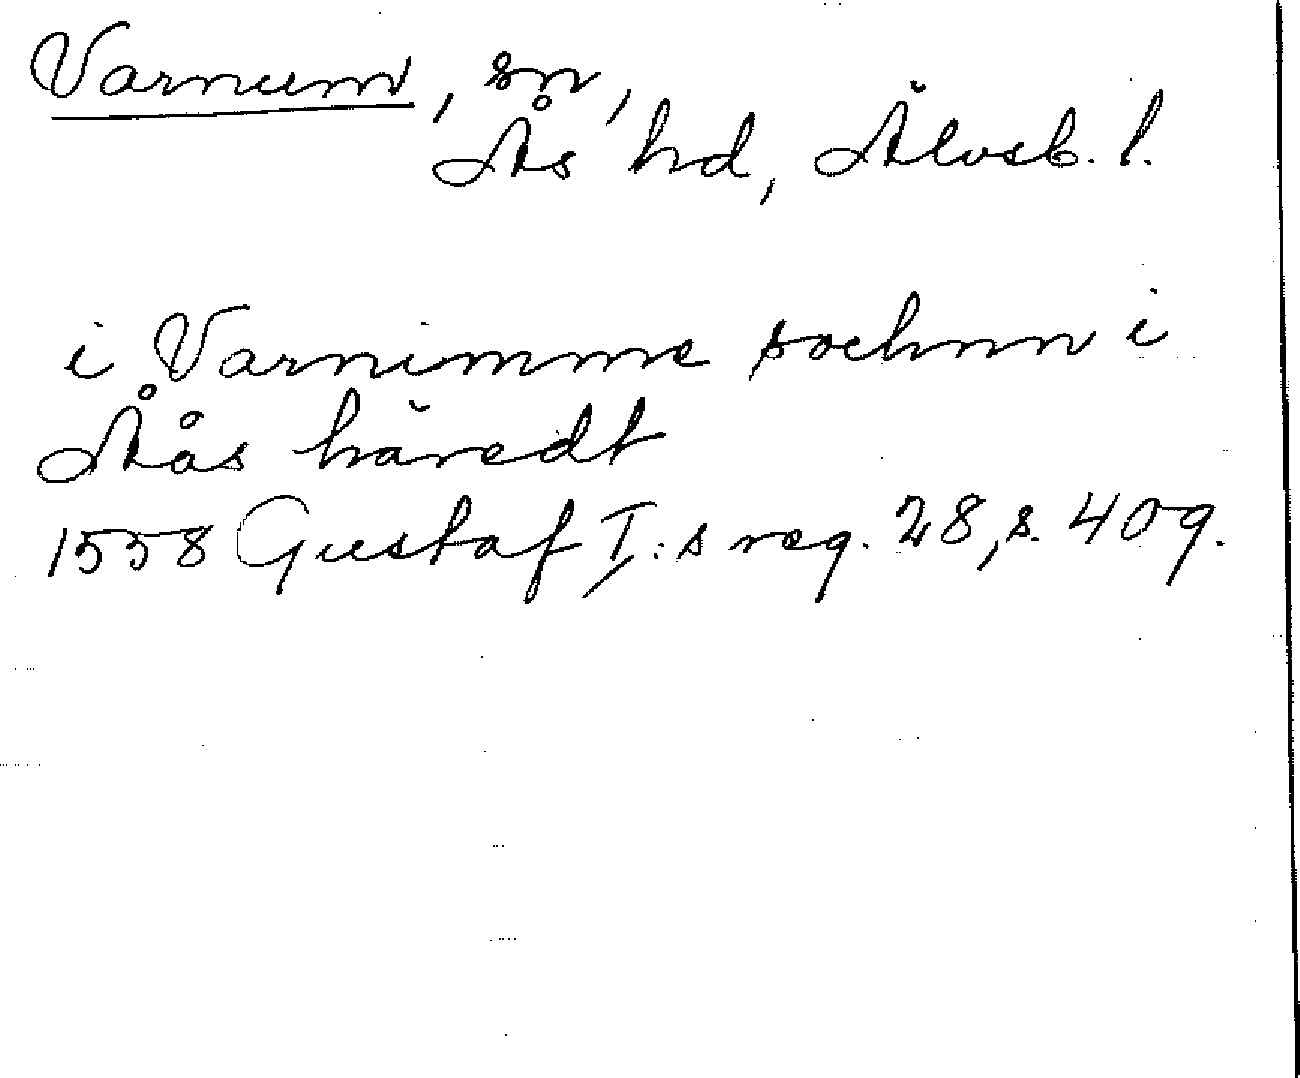 Varnum, sn,
Ås hd, Älvsb. l.
i Varnimme sochnn i
Åås häredt
1558 Gustaf I:s reg. 28, s. 409.